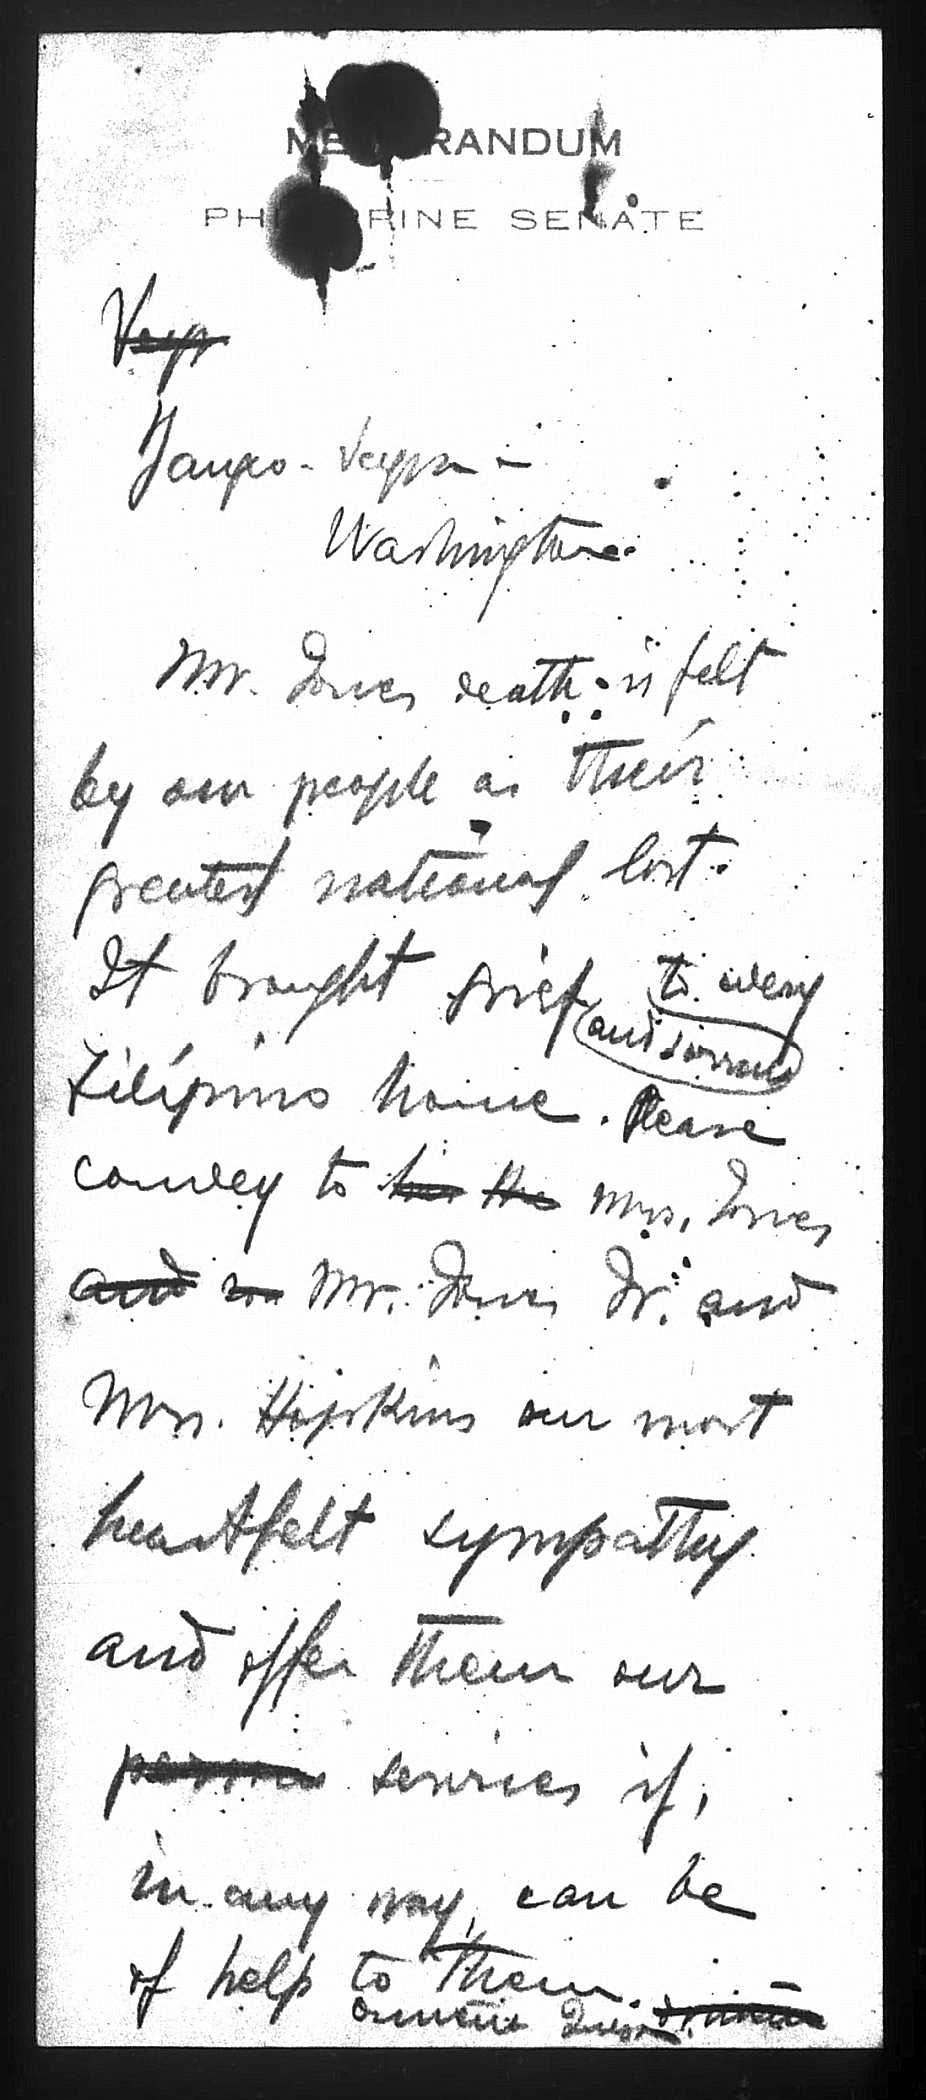 MEMORANDUM
PHILIPPINE SENATE
Yangco - Veyra -
Washington.
Mr. Jones death is felt
by our people as their
greatest national lost.
It brought grief to every
and sorrow
Filipino home. Please
convey to her the Mrs. Jones
and Mr. Jones Jr. and
Mrs. Hopkins our most
heartfelt sympathy
and offer them our
services if,
in any way, can be
of help to them.
Quezon